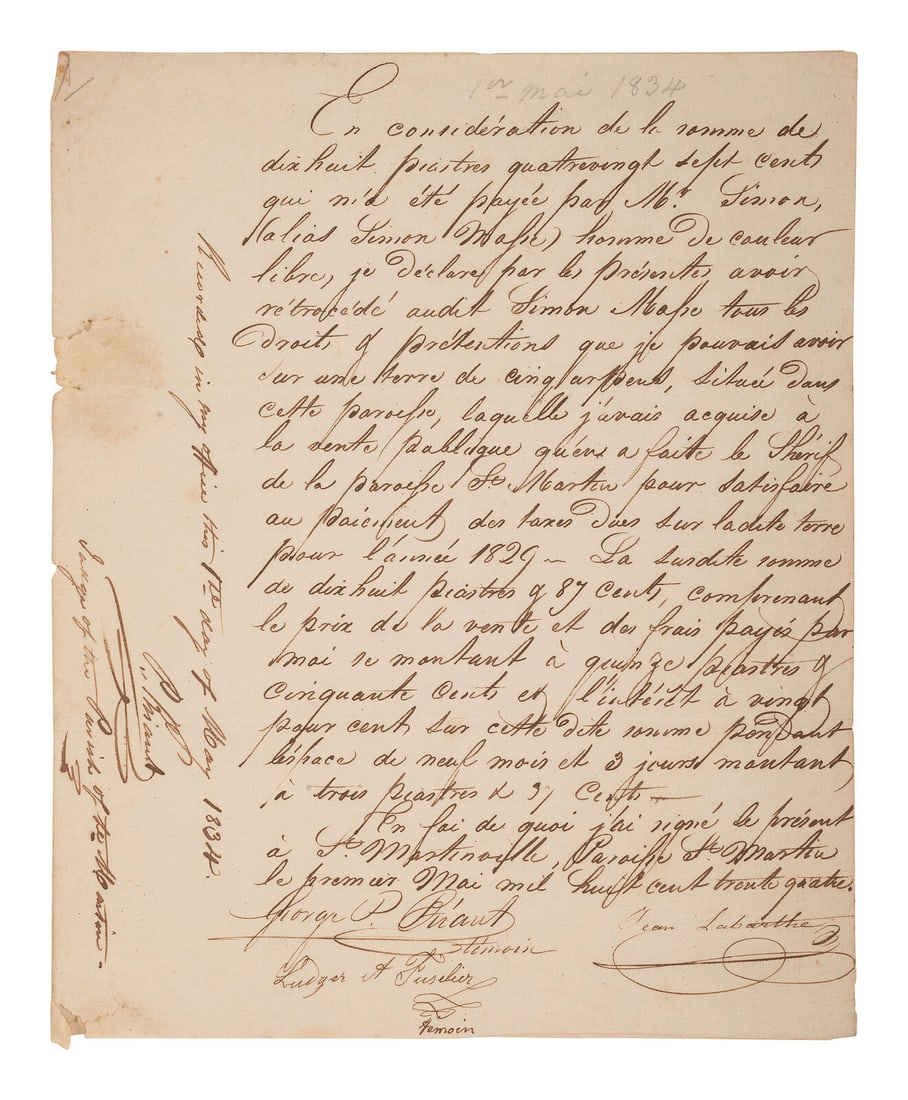 1er mai 1834
En considération de la somme de
dix huit piastres quatrevingt sept cents
qui m'a été payée par Mr. Simon,
(alias Simon Masse) homme de couleur
libre, je déclare par les présentes avoir
rétrocédé audit Simon Masse tous les
Droits & prétentions que je pouvais avoir
sur une terre de cinq arpens, située dans
cette paroisse, laquelle j'avais acquise à
la vente publique qu'en a faite le Shérif
de la paroisse St. Martin pour satisfaire
au paiement des taxes dues sur ladite terre
pour l'année 1829 — La susdite somme
de dix huit piastres & 87 cents, comprenant
le prix de la vente et des frais payés par
moi se montant à quinze piastres &
cinquante cents et l'intérêt à vingt
pour cent sur cette dite somme pendant
l'espace de neuf mois et 3 jours montant
à trois piastres & 37 Cents —
En foi de quoi j'ai signé le présent
à St. Martinville, Paroisse St. Martin
le premier Mai mil huit cent trente quatre.
George P. Briant
témoin
Jean Labarthe
Ludger A Fuselier
temoin
Recorded in my office this 1st day of May 1834.
P. Briant
Judge of the Parish of St. Martin.